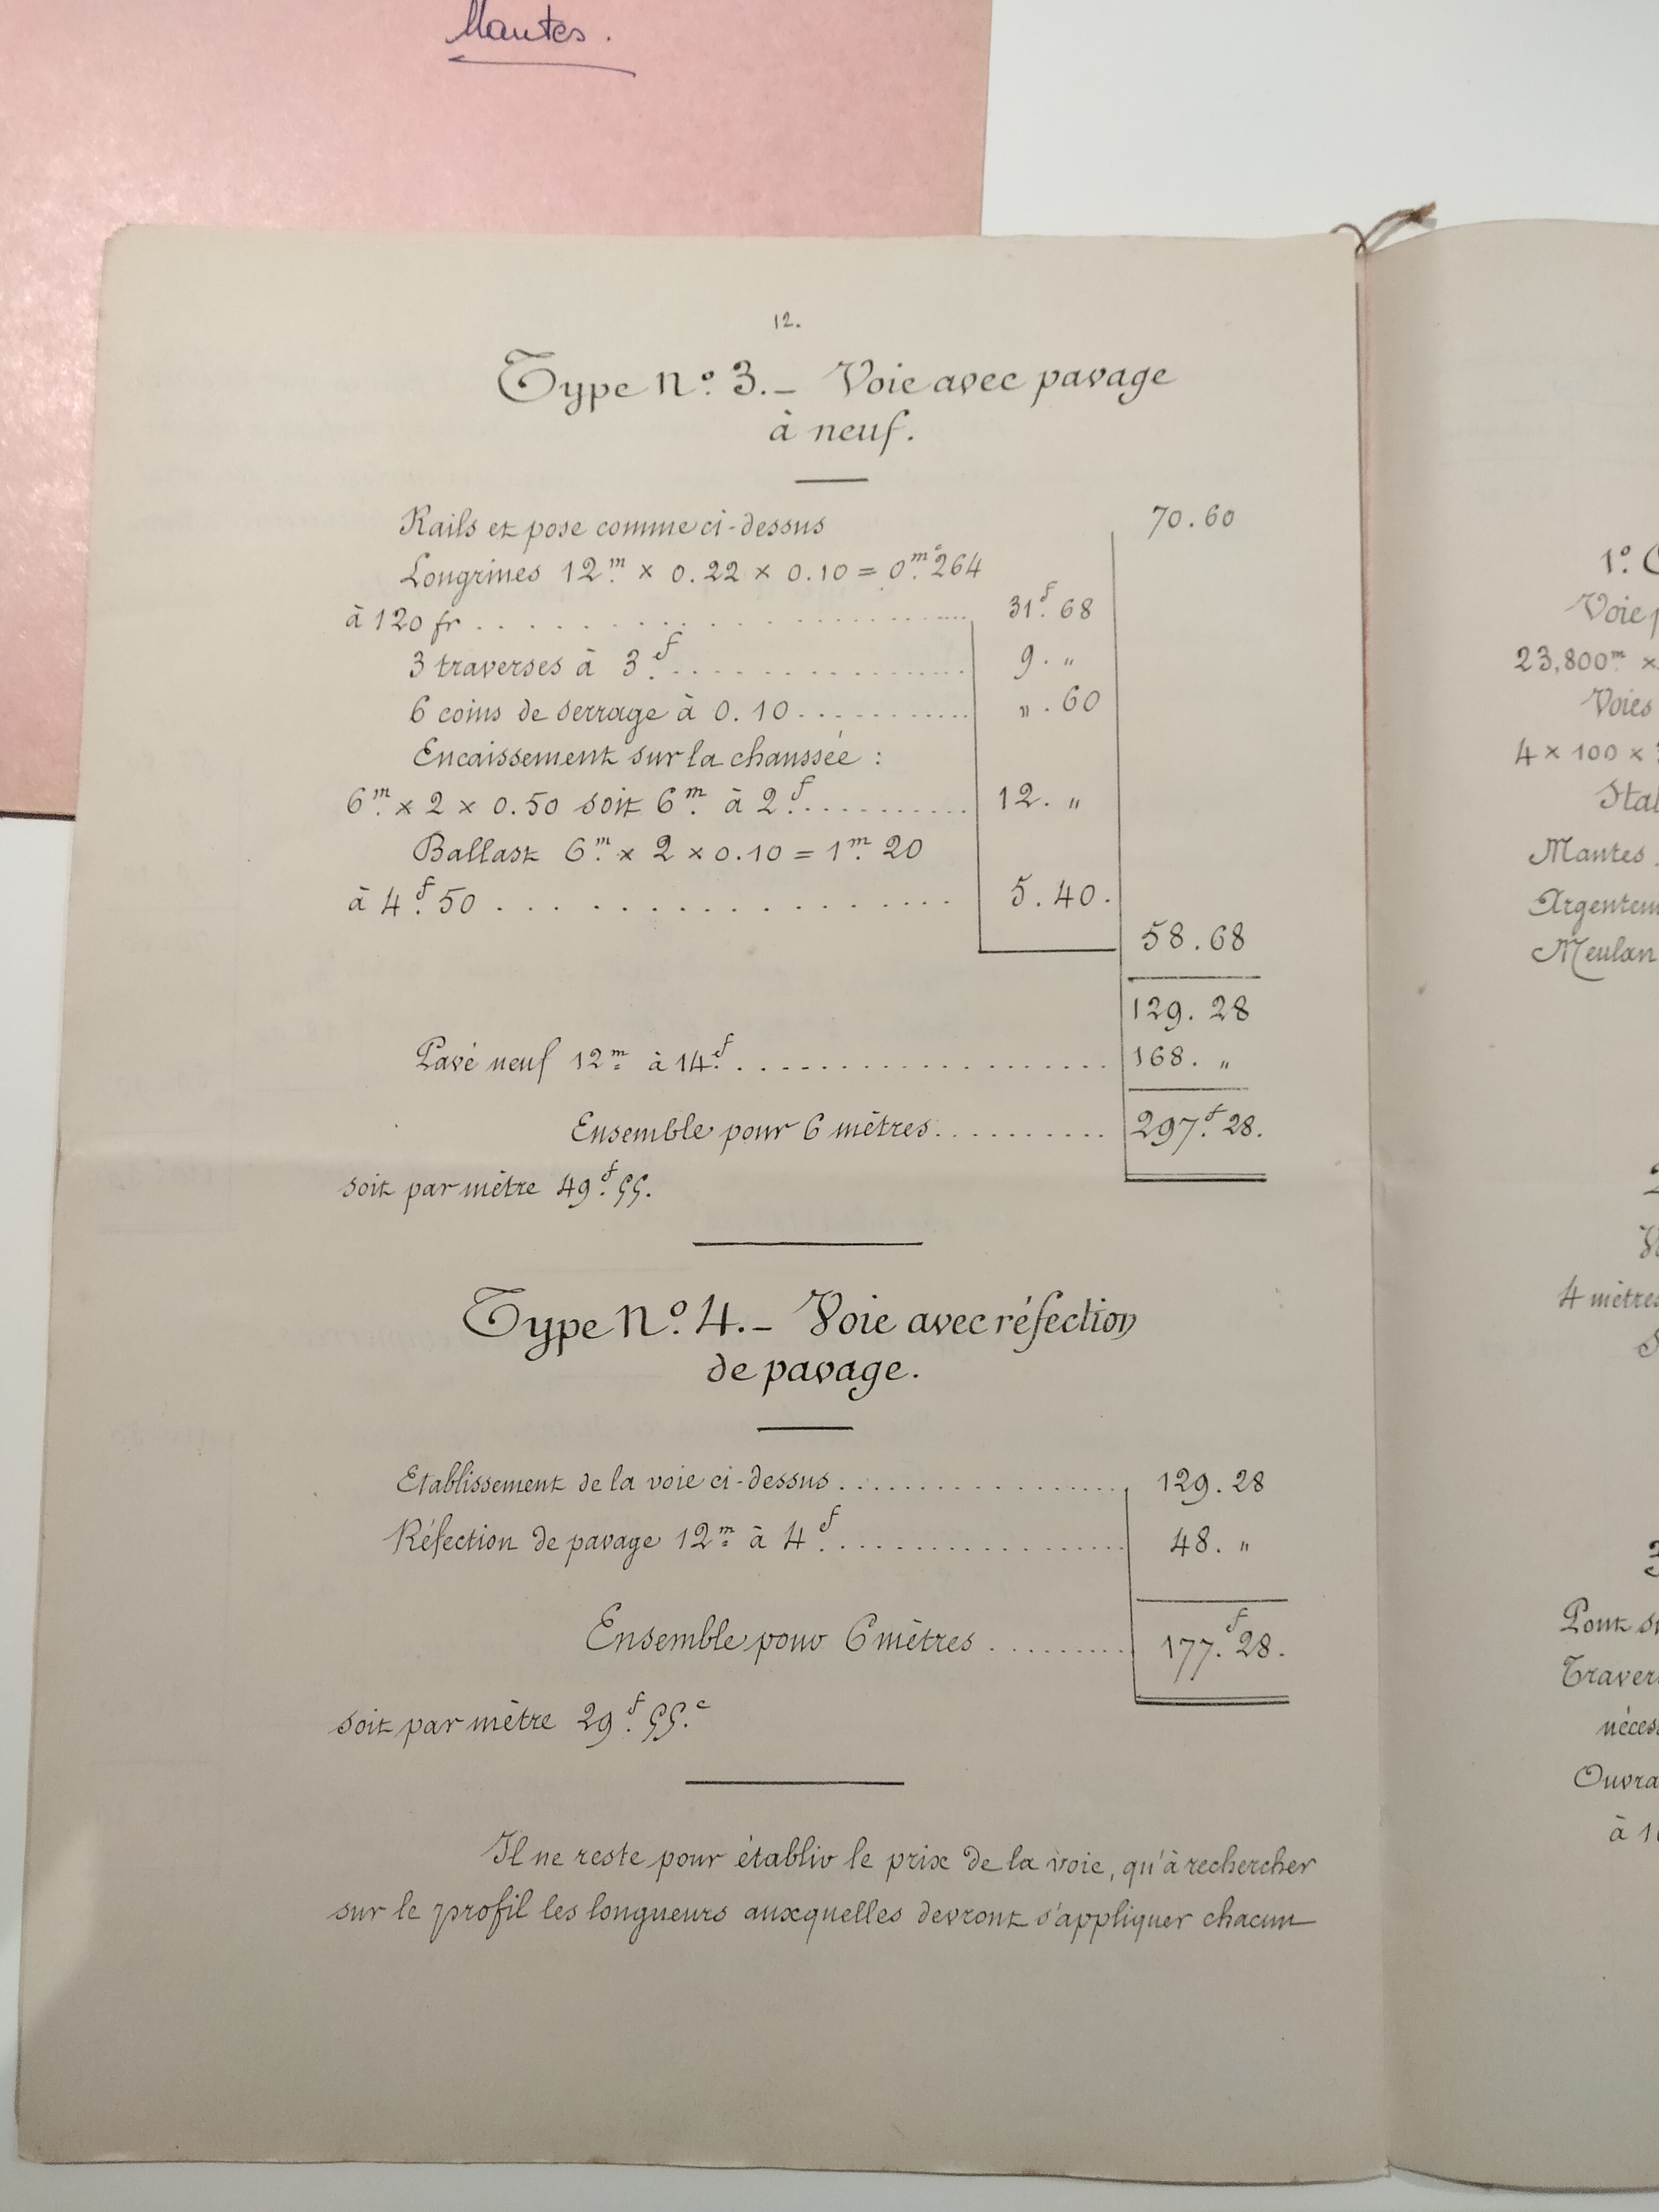 Mantes.
12.
Type N.º 3._ Voie avec pavage
à neuf.
Rails et pose comme ci-dessus 70.60
Longrines 12.m × 0.22 × 0.10 = 0.mc 264
à 120 fr .......... 31.f 68
3 traverses à 3.f .......... 9. "
6 coins de serrage à 0.10 .......... ". 60
Encaissement sur la chaussée :
6.m × 2 × 0.50 soit 6.m à 2.f .......... 12. "
Ballast 6.m × 2 × 0.10 = 1.m 20
à 4.f 50 .......... 5.40.
58.68
129.28
Pavé neuf 12m à 14.f .......... 168. "
Ensemble pour 6 mètres .......... 297.f 28.
soit par mètre 49.f 55.
Type N.º 4._ Voie avec réfection
de pavage.
Etablissement de la voie ci-dessus .......... 129.28
Réfection de pavage 12m à 4.f .......... 48. "
Ensemble pour 6 mètres .......... 177.f 28.
soit par mètre 29.f 55.c
Il ne reste pour établir le prix de la voie, qu'à rechercher
sur le profil les longueurs auxquelles devront s'appliquer chacun
1.º
Voie
23,800m ×
Voies
4 × 100 ×
Mantes
Meulan
4 mètres
Pont
à